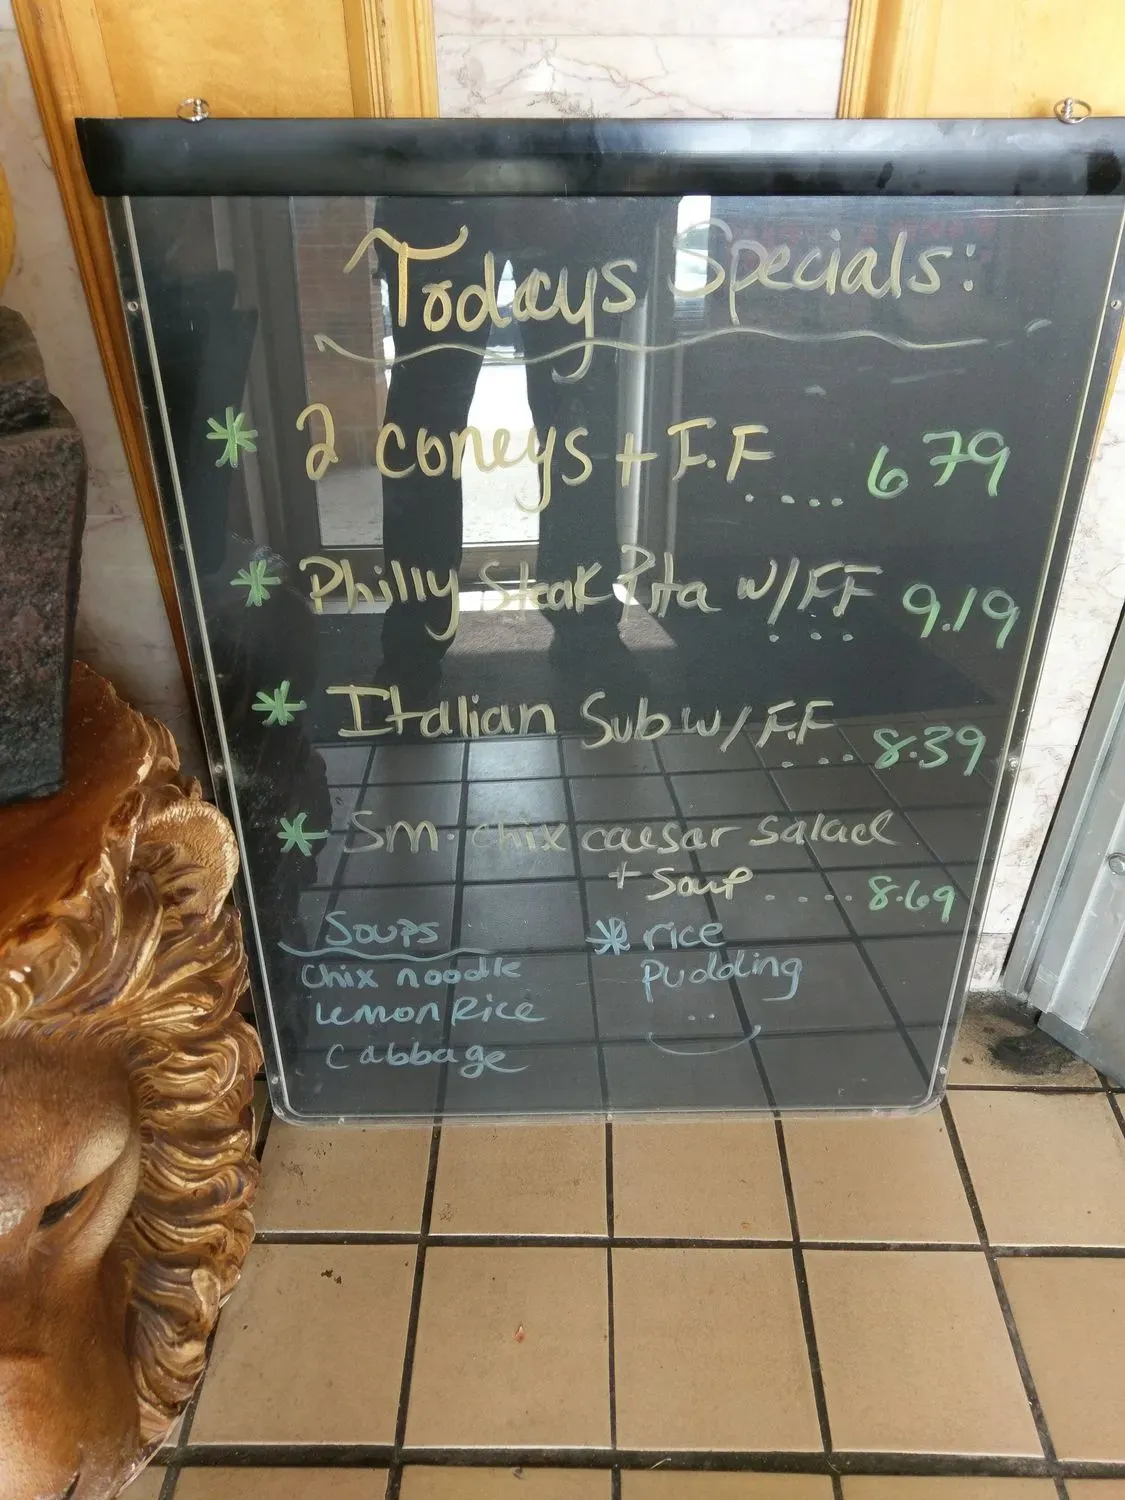 Todays Specials:
* 2 coneys + F.F .... 6 79
* Philly Steak Pita w/ F.F ... 9.19
* Italian Sub w/ F.F .... 8.39
* Sm. chix caesar salad
+ Soup .... 8.69
Soups
Chix noodle
Lemon Rice
Cabbage
* rice
Pudding